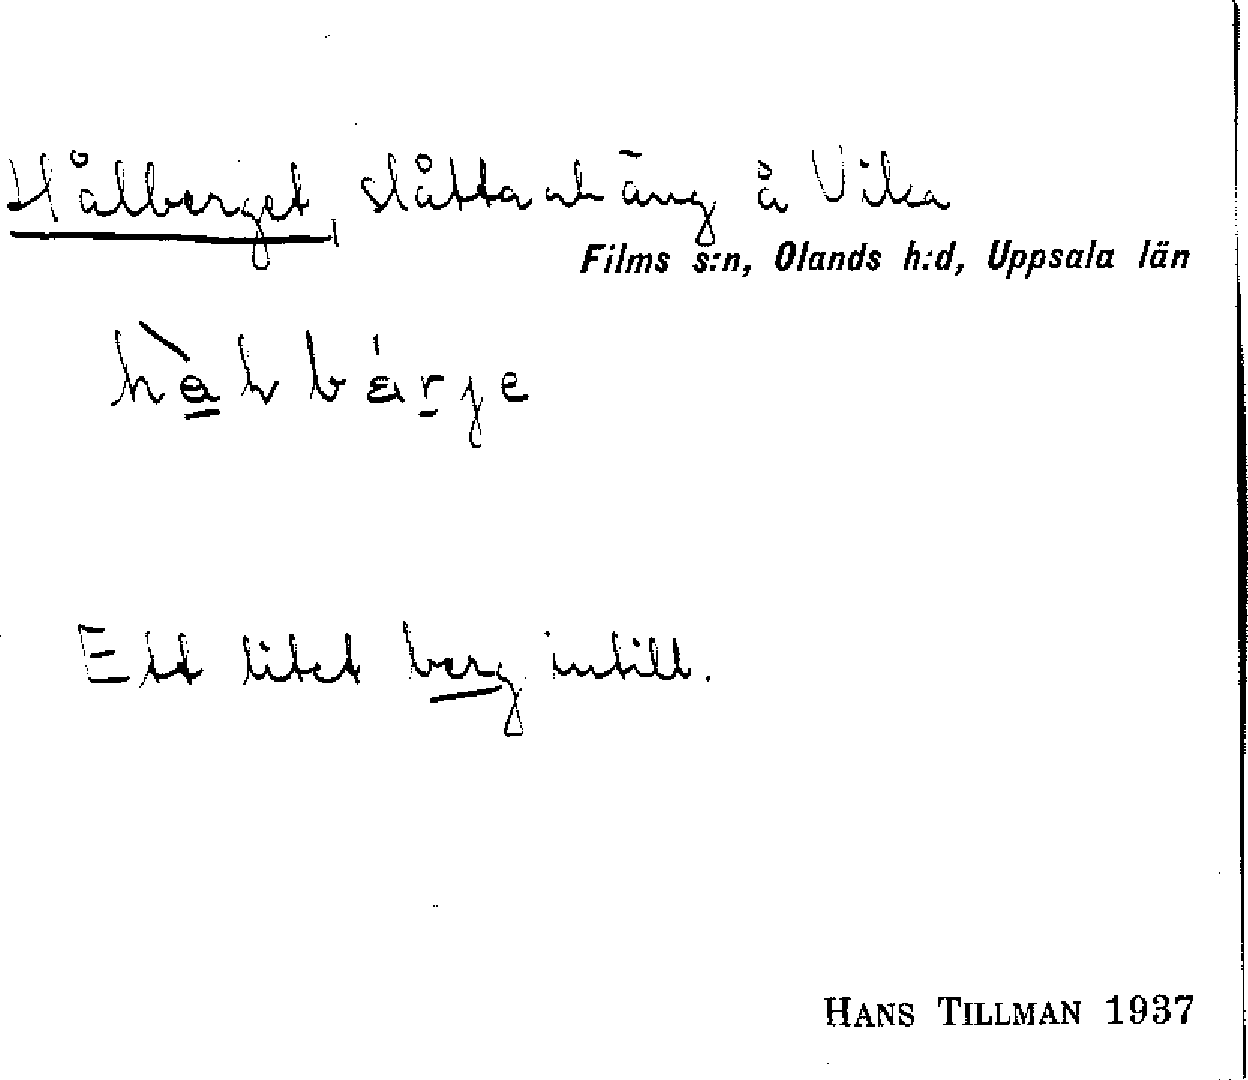 Hålberget, slåttaräng å Vika
Films s:n, Olands h:d, Uppsala län
Ett litet berg intill.
HANS TILLMAN 1937